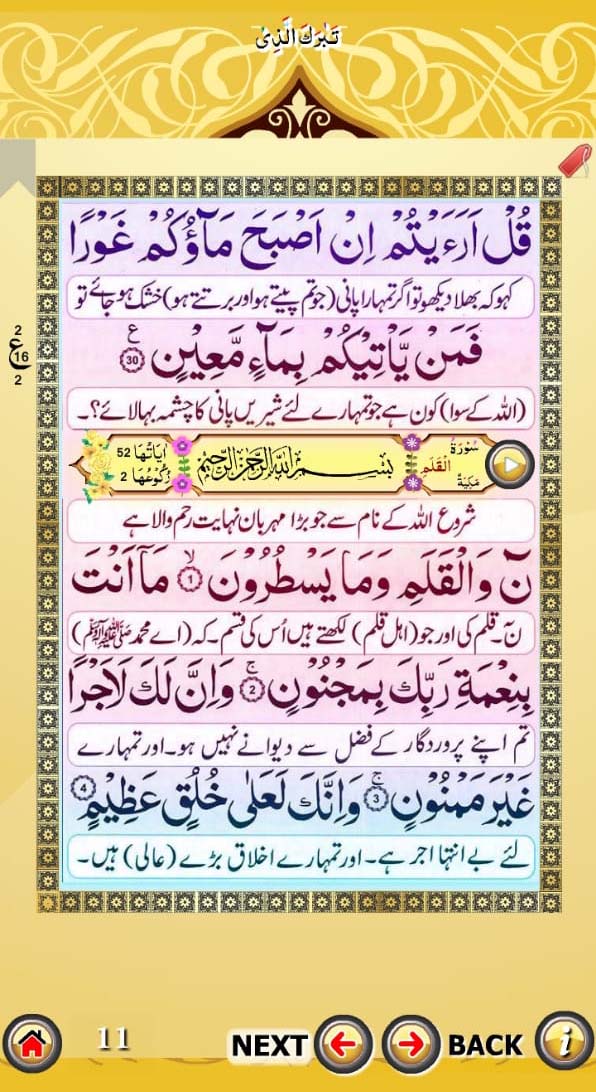 تَبٰرَكَ الَّذِیْ
قُلْ اَرَءَیْتُمْ اِنْ اَصْبَحَ مَآؤُكُمْ غَوْرًا
کہو کہ بھلا دیکھو تو اگر تمہارا پانی (جو تم پیتے ہو اور برتتے ہو) خشک ہو جائے تو
2
ع
16
2
فَمَنْ یَّاْتِیْكُمْ بِمَآءٍ مَّعِیْنٍ ع 30
(اللہ کے سوا) کون ہے جو تمہارے لئے شیریں پانی کا چشمہ بہا لائے؟۔
سُوْرَةُ الْقَلَمِ مَكِّیَّةٌ
بِسْمِ اللّٰهِ الرَّحْمٰنِ الرَّحِیْمِ
اٰیَاتُهَا 52
رُكُوْعُهَا 2
شروع اللہ کے نام سے جو بڑا مہربان نہایت رحم والا ہے
نٓ وَالْقَلَمِ وَمَا یَسْطُرُوْنَ ۙ 1 مَاۤ اَنْتَ
نٓ۔ قلم کی اور جو (اہل قلم) لکھتے ہیں اُس کی قسم۔ کہ (اے محمد ﷺ)
بِنِعْمَةِ رَبِّكَ بِمَجْنُوْنٍ ۚ 2 وَاِنَّ لَكَ لَاَجْرًا
تم اپنے پروردگار کے فضل سے دیوانے نہیں ہو۔ اور تمہارے
غَیْرَ مَمْنُوْنٍ ۚ 3 وَاِنَّكَ لَعَلٰی خُلُقٍ عَظِیْمٍ 4
لئے بے انتہا اجر ہے۔ اور تمہارے اخلاق بڑے (عالی) ہیں۔
11 NEXT BACK i